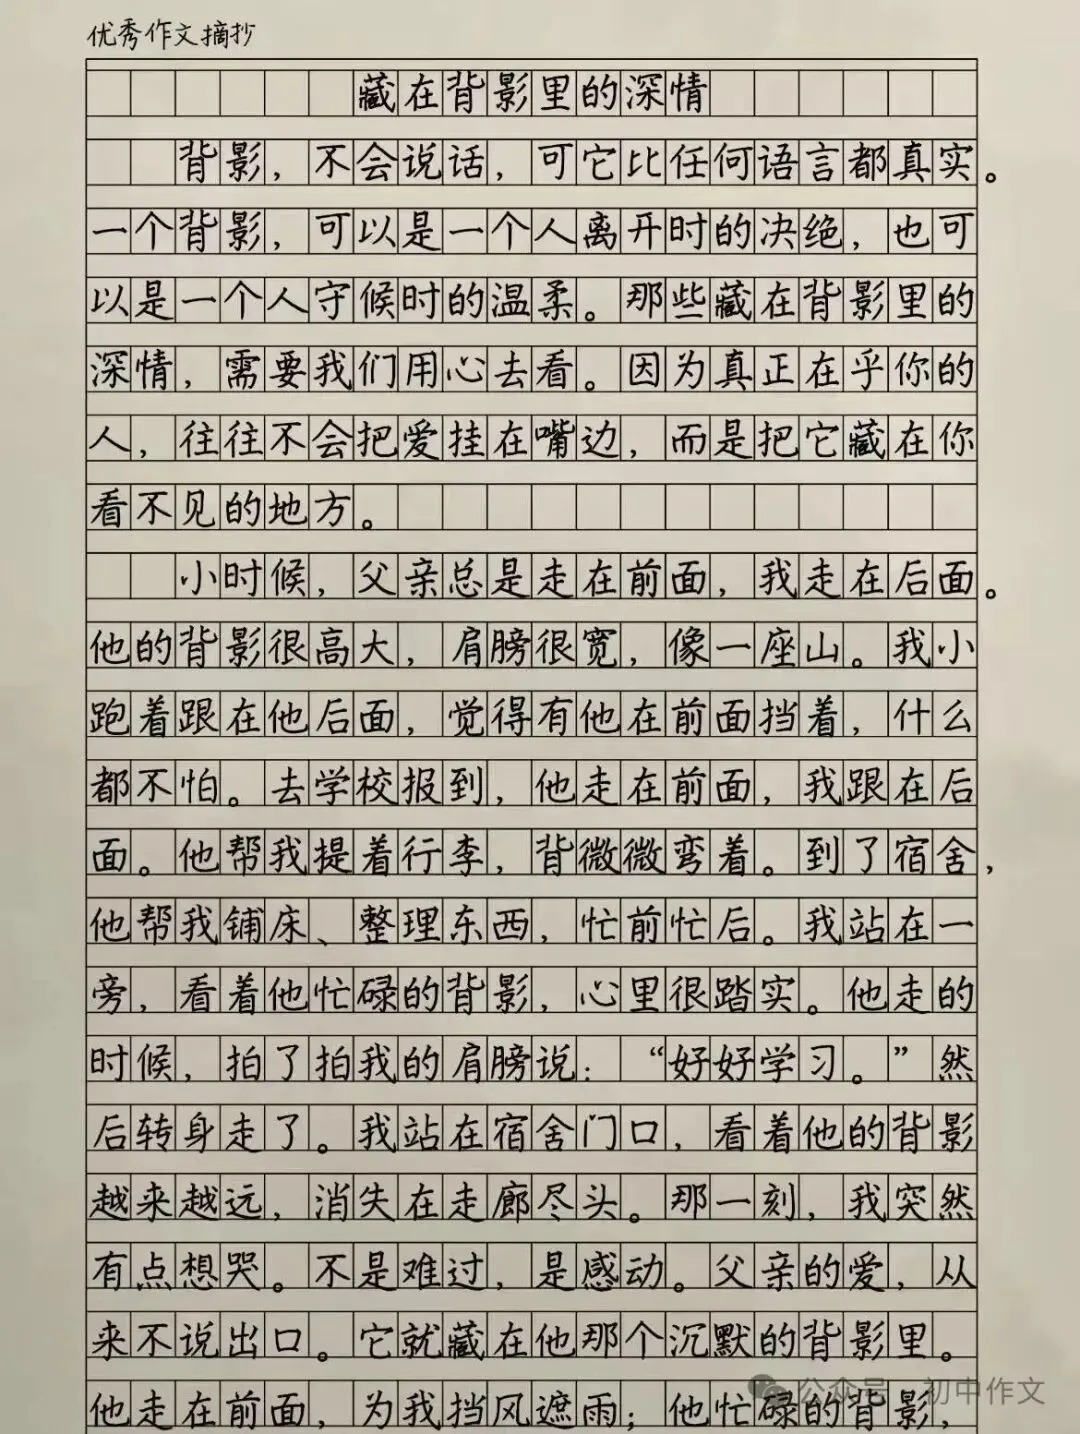 优秀作文摘抄
藏在背影里的深情
背影，不会说话，可它比任何语言都真实。
一个背影，可以是一个人离开时的决绝，也可
以是一个人守候时的温柔。那些藏在背影里的
深情，需要我们用心去看。因为真正在乎你的
人，往往不会把爱挂在嘴边，而是把它藏在你
看不见的地方。
小时候，父亲总是走在前面，我走在后面。
他的背影很高大，肩膀很宽，像一座山。我小
跑着跟在他后面，觉得有他在前面挡着，什么
都不怕。去学校报到，他走在前面，我跟在后
面。他帮我提着行李，背微微弯着。到了宿舍，
他帮我铺床、整理东西，忙前忙后。我站在一
旁，看着他忙碌的背影，心里很踏实。他走的
时候，拍了拍我的肩膀说：“好好学习。”然
后转身走了。我站在宿舍门口，看着他的背影
越来越远，消失在走廊尽头。那一刻，我突然
有点想哭。不是难过，是感动。父亲的爱，从
来不说出口。它就藏在他那个沉默的背影里。
他走在前面，为我挡风遮雨；他忙碌的背影，
公众号 · 初中作文